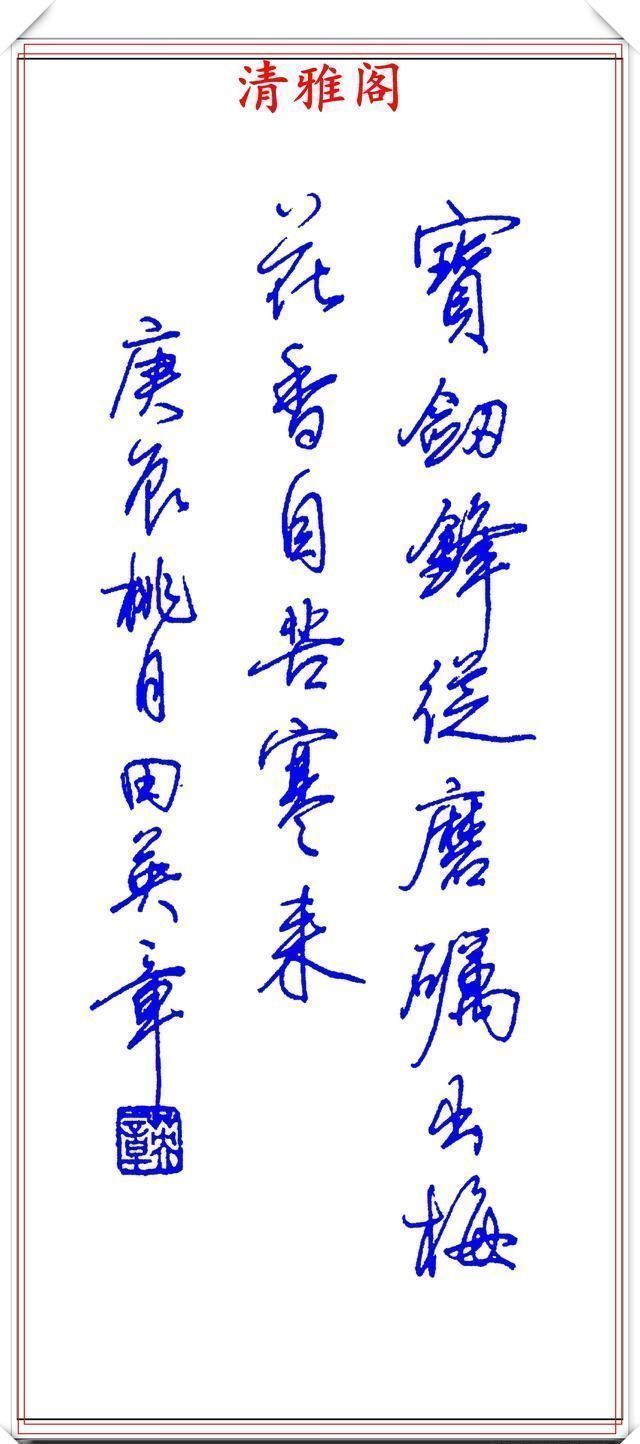 清雅阁
寶劔鋒從磨礪出梅
花香自苦寒來
庚辰桃月田英章
英章